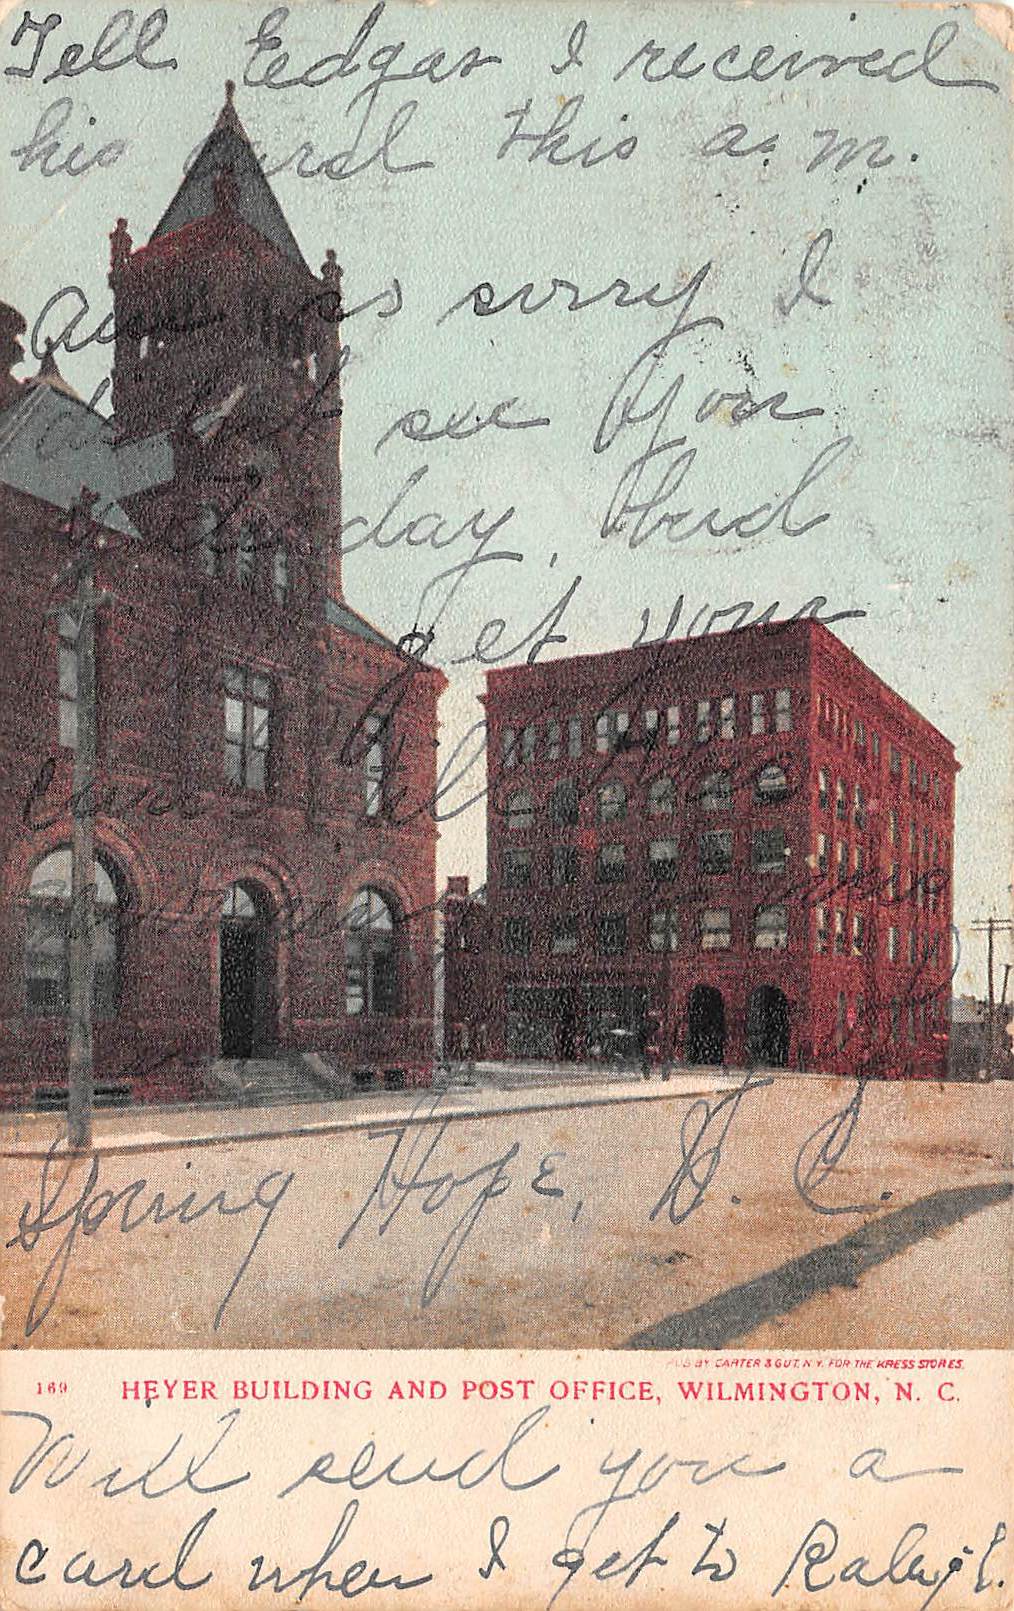 Tell Edgar I received
his card this a. m.
And was sorry I
did not see you
day, Had
get your
Will
morning
Spring Hope, N. C.
PUB BY CARTER & GUT, N.Y. FOR THE KRESS STORES.
169 HEYER BUILDING AND POST OFFICE, WILMINGTON, N. C.
Will send you a
card when I get to Raleigh.